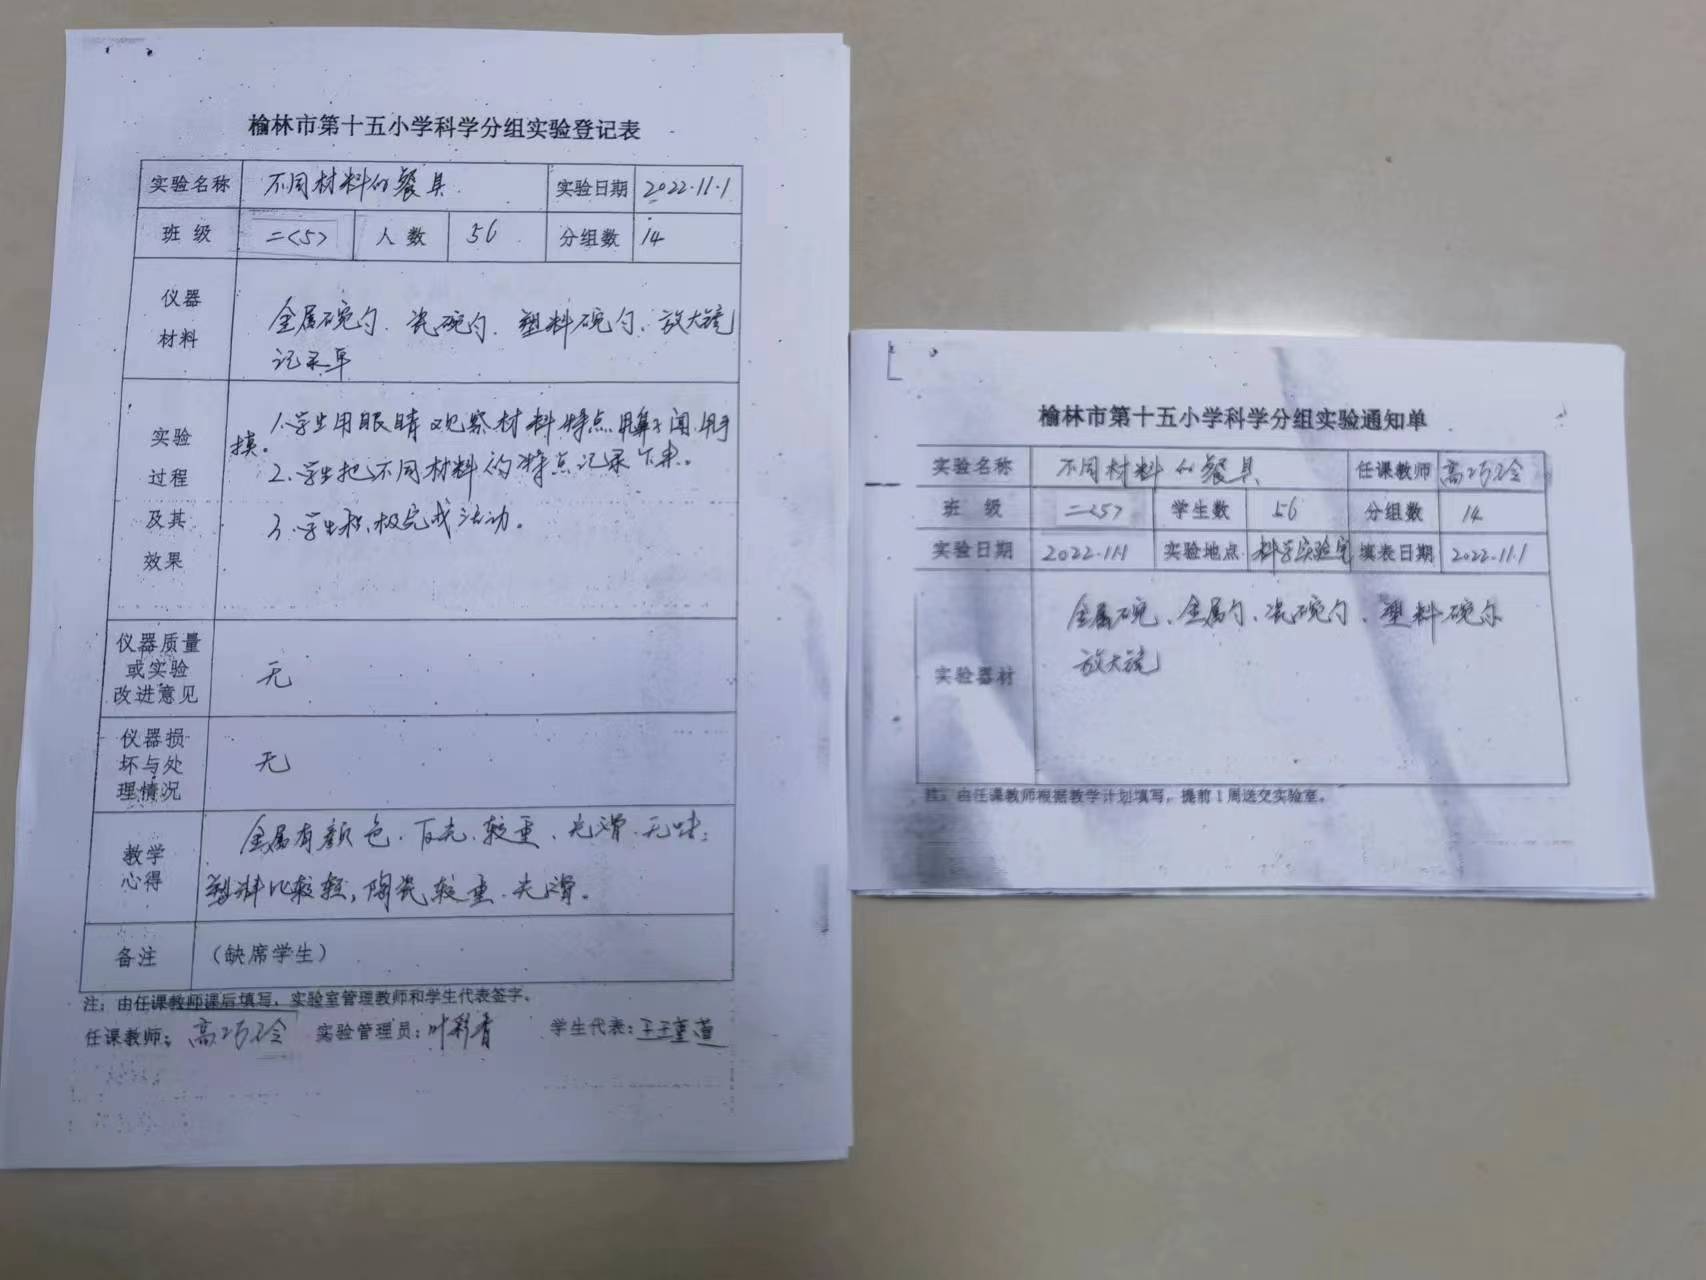 榆林市第十五小学科学分组实验登记表
实验名称 不同材料的餐具 实验日期 2022.11.1
班 级 二<5> 人 数 56 分组数 14
仪器
材料
金属碗勺、瓷碗勺、塑料碗勺、放大镜
记录单
实验
过程
及其
效果
1.学生用眼睛观察材料特点,用鼻子闻,用手
摸。
2.学生把不同材料的特点记录下来。
3.学生积极完成活动。
仪器质量
或实验
改进意见
无
仪器损
坏与处
理情况
无
教学
心得
金属有颜色、反光、较重、光滑、无味;
塑料比较轻,陶瓷较重、光滑。
备注 (缺席学生)
注:由任课教师课后填写,实验室管理教师和学生代表签字。
任课教师: 高巧玲 实验管理员: 叶彩青 学生代表:
榆林市第十五小学科学分组实验通知单
实验名称 不同材料的餐具 任课教师 高巧玲
班 级 二<5> 学生数 56 分组数 14
实验日期 2022.11.1 实验地点 科学实验室 填表日期 2022.11.1
实验器材
金属碗、金属勺、瓷碗勺、塑料碗勺
放大镜
注:由任课教师根据教学计划填写,提前1周送交实验室。